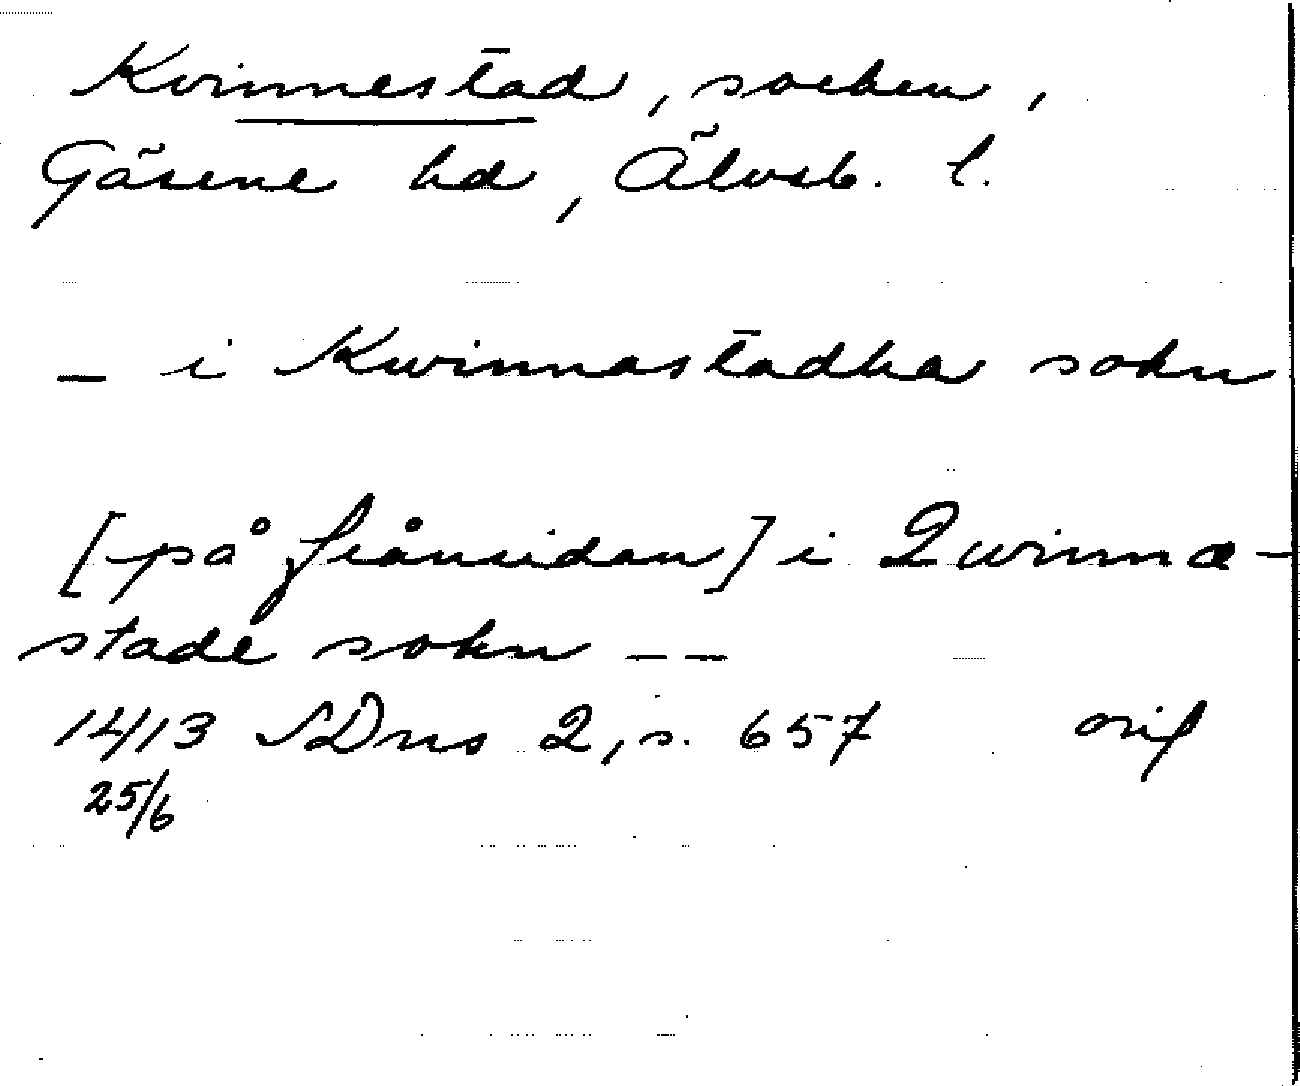 Kvinnestad, socken,
Gäsene hd, Älvsb. l.
– i Kwinnastadha sokn
[på frånsidan] i Qwinnæ-
stade sokn – –
1413 SDns 2, s. 657 orig
25/6